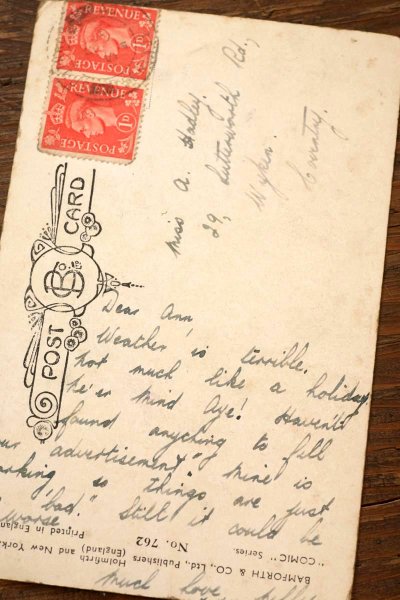 REVENUE
POSTAGE
1D
REVENUE
POSTAGE
1D
POST CARD
Miss A. Hadley,
29, Lutterworth Rd.,
Wyken.
Coventry.
Dear Ann,
Weather is terrible.
Not much like a holiday
Ne'er mind Aye! Haven't
found anything to fill
our advertisement" Mine is
arking" things are just
bad." Still it could be
worse
Much love,
BAMFORTH & CO., Ltd., Publishers Holmfirth (England) and New York.
"COMIC" Series.
No. 762
Printed in England